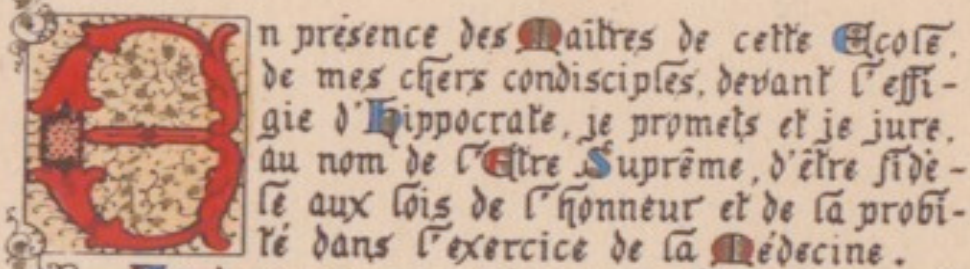 En présence des Maîtres de cette École,
de mes chers condisciples, devant l'effi-
gie d'Hippocrate, je promets et je jure,
au nom de l'Etre Suprême, d'être fidè-
le aux lois de l'honneur et de la probi-
té dans l'exercice de la Médecine.